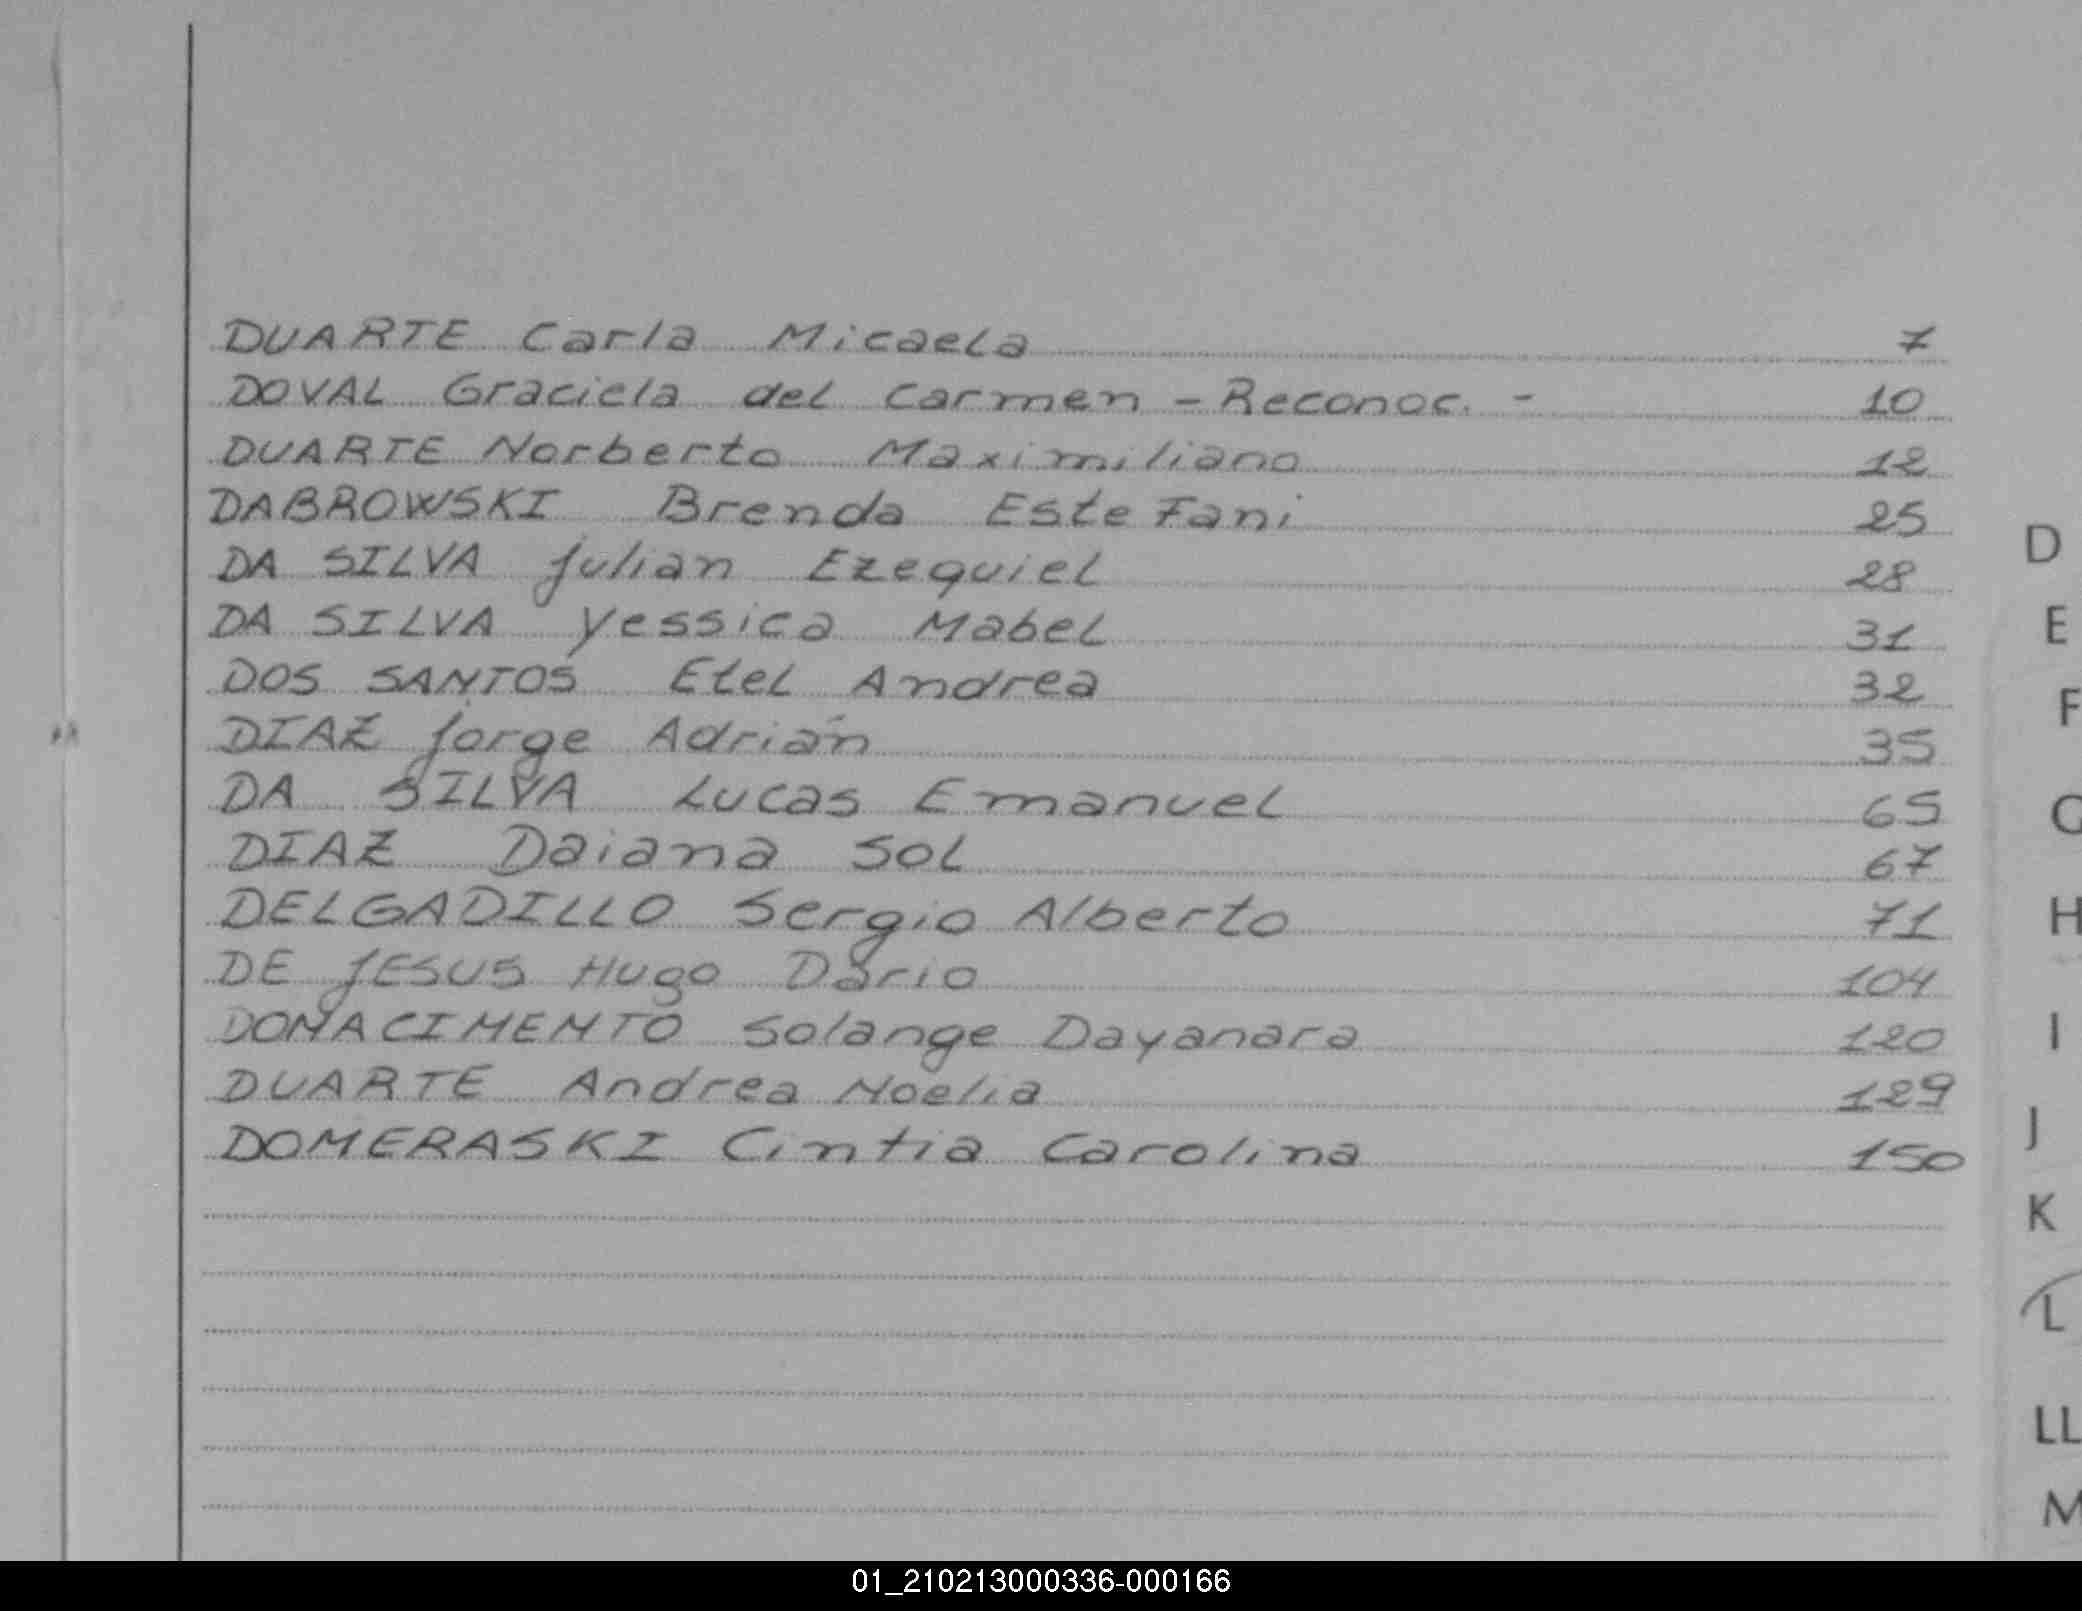 DUARTE Carla Micaela 7
DOVAL Graciela del Carmen - Reconoc. - 10
DUARTE Norberto Maximiliano 12
DABROWSKI Brenda Estefani 25
DA SILVA Julian Ezequiel 28
DA SILVA Yessica Mabel 31
DOS SANTOS Etel Andrea 32
DIAZ Jorge Adrián 35
DA SILVA Lucas Emanuel 65
DIAZ Daiana Sol 67
DELGADILLO Sergio Alberto 71
DE JESUS Hugo Dario 104
DONACIMENTO Solange Dayanara 120
DUARTE Andrea Noelia 129
DOMERASKI Cintia Carolina 150
D
E
F
G
H
I
J
K
L
LL
M
01_210213000336-000166